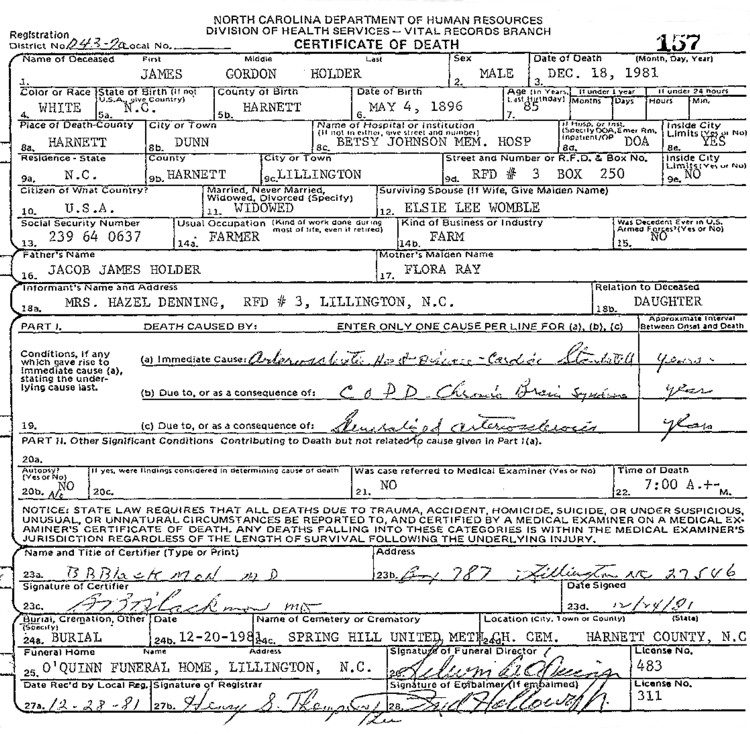 NORTH CAROLINA DEPARTMENT OF HUMAN RESOURCES
DIVISION OF HEALTH SERVICES - VITAL RECORDS BRANCH
Registration District No. D43-20 Local No. CERTIFICATE OF DEATH 157
Name of Deceased First Middle Last Sex Date of Death (Month, Day, Year)
1. JAMES GORDON HOLDER 2. MALE 3. DEC. 18, 1981
Color or Race State of Birth (If not U.S.A., give Country) County of Birth Date of Birth Age (In Years, Last Birthday) If under 1 year Months Days If under 24 hours Hours Min.
4. WHITE 5a. N.C. 5b. HARNETT 6. MAY 4, 1896 7. 85
Place of Death-County City or Town Name of Hospital or Institution (If not in either, give street and number) If Hosp. or Inst. (Specify DOA, Emer Rm, Inpatient/OP Inside City Limits (Yes or No)
8a. HARNETT 8b. DUNN 8c. BETSY JOHNSON MEM. HOSP 8d. DOA 8e. YES
Residence - State County City or Town Street and Number or R.F.D. & Box No. Inside City Limits (Yes or No)
9a. N.C. 9b. HARNETT 9c. LILLINGTON 9d. RFD # 3 BOX 250 9e. NO
Citizen of What Country? Married, Never Married, Widowed, Divorced (Specify) Surviving Spouse (If Wife, Give Maiden Name)
10. U.S.A. 11. WIDOWED 12. ELSIE LEE WOMBLE
Social Security Number Usual Occupation (Kind of work done during most of life, even if retired) Kind of Business or Industry Was Decedent Ever in U.S. Armed Forces? (Yes or No)
13. 239 64 0637 14a. FARMER 14b. FARM 15. NO
Father's Name Mother's Maiden Name
16. JACOB JAMES HOLDER 17. FLORA RAY
Informant's Name and Address Relation to Deceased
18a. MRS. HAZEL DENNING, RFD # 3, LILLINGTON, N.C. 18b. DAUGHTER
PART I. DEATH CAUSED BY: ENTER ONLY ONE CAUSE PER LINE FOR (a), (b), (c) Approximate Interval Between Onset and Death
Conditions, if any which gave rise to immediate cause (a), stating the underlying cause last.
(a) Immediate Cause: Arteriosclerotic Heart Disease - Cardiac Standstill years -
(b) Due to, or as a consequence of: COPD - Chronic Brain Syndrome years
19. (c) Due to, or as a consequence of: Generalized Arteriosclerosis years
PART II. Other Significant Conditions Contributing to Death but not related to cause given in Part I(a).
20a.
Autopsy? (Yes or No) If yes, were findings considered in determining cause of death Was case referred to Medical Examiner (Yes or No) Time of Death
20b. NO No 20c. 21. NO 22. 7:00 A.+- M.
NOTICE: STATE LAW REQUIRES THAT ALL DEATHS DUE TO TRAUMA, ACCIDENT, HOMICIDE, SUICIDE, OR UNDER SUSPICIOUS,
UNUSUAL, OR UNNATURAL CIRCUMSTANCES BE REPORTED TO, AND CERTIFIED BY A MEDICAL EXAMINER ON A MEDICAL EX-
AMINER'S CERTIFICATE OF DEATH. ANY DEATHS FALLING INTO THESE CATEGORIES IS WITHIN THE MEDICAL EXAMINER'S
JURISDICTION REGARDLESS OF THE LENGTH OF SURVIVAL FOLLOWING THE UNDERLYING INJURY.
Name and Title of Certifier (Type or Print) Address
23a. B B Blackmon MD 23b. Box 787 Lillington NC 27546
Signature of Certifier Date Signed
23c. Blackmon MD 23d. 12/24/81
Burial, Cremation, Other (Specify) Date Name of Cemetery or Crematory Location (City, Town or County) (State)
24a. BURIAL 24b. 12-20-1981 24c. SPRING HILL UNITED METH. CH. CEM. 24d. HARNETT COUNTY, N.C
Funeral Home Name Address Signature of Funeral Director License No.
25. O'QUINN FUNERAL HOME, LILLINGTON, N.C. 26. 483
Date Rec'd by Local Reg. Signature of Registrar Signature of Embalmer (If embalmed) License No.
27a. 12-28-81 27b. Henry S. Thompson 28. 311